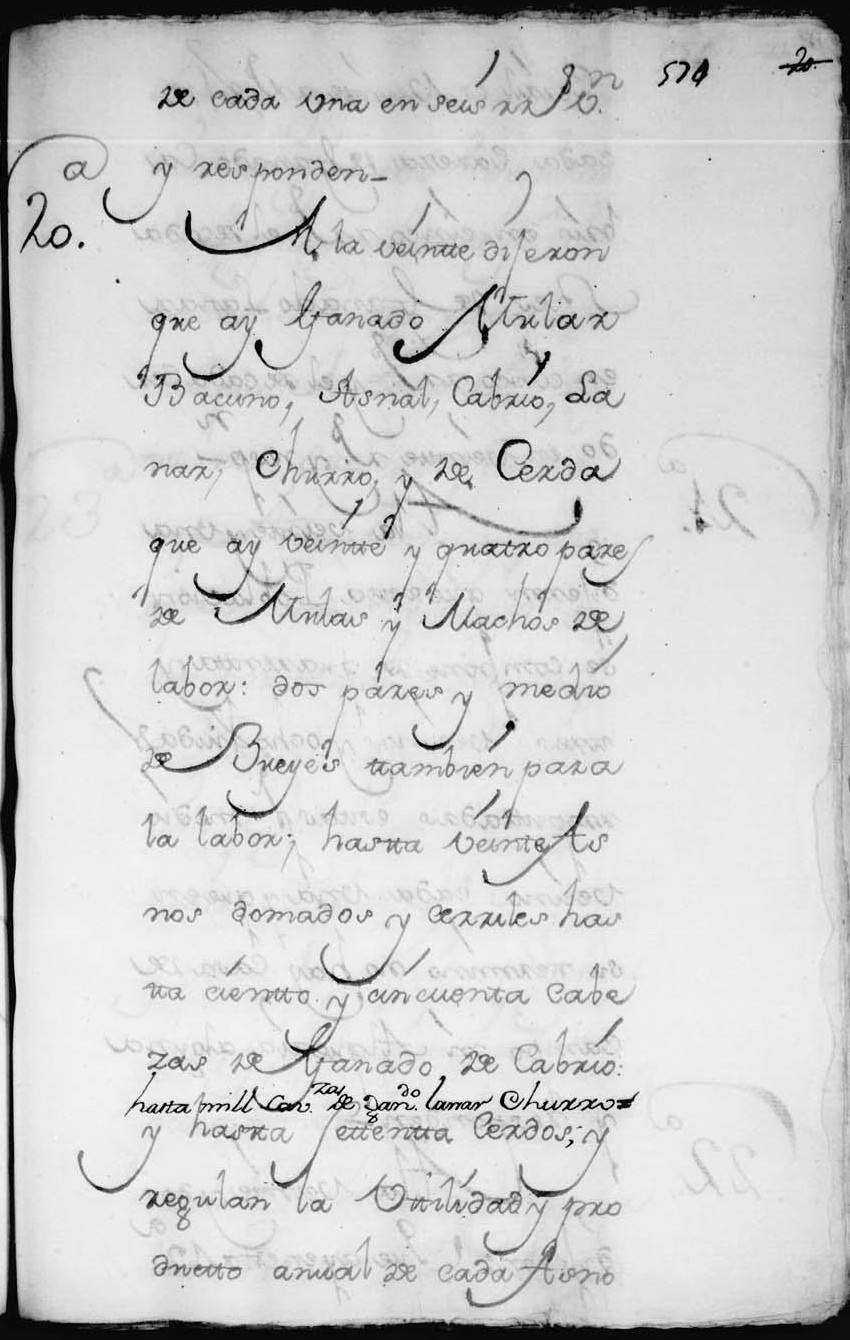 574 20.
de cada una en seis rr.s v.n
y responden_
20.a
A la veintte dijeron
que ay Ganado Mular
Bacuno, Asnal, Cabrío, La
nar, Churro, y de Cerda
que ay veintte y quatro pares
de Mulas y Machos de
labor: dos pares y medio
de Bueyes ttambien para
la labor; hastta veinte As
nos domados y cerriles has
tta cientto y cincuenta Cabe
zas de Ganado de Cabrío:
hasta mill Cav.zas de Gan.do lanar Churro=
y hastta settentta Cerdos; y
regulan la Uttilidad y pro
ductto anual de cada Asno